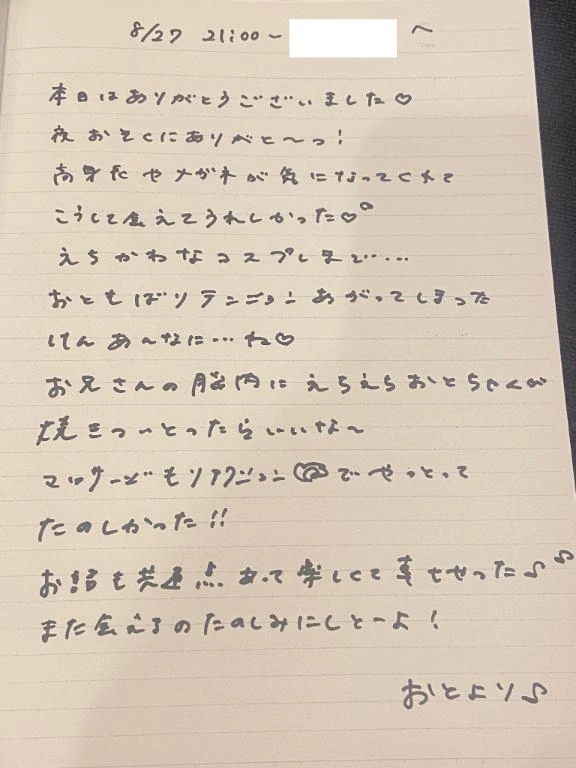 8/27 21:00～ へ
本日はありがとうございました♡
夜おそくにありがと〜っ!
高身長やメガネが気になってくれて
こうして会えてうれしかった♡
えちかわなコスプレまで・・・・
おともばりテンション あがってしまった
けん あ〜んなに・・・ね♡
お兄さんの脳内に えちえちおとちゃんが
焼きついとったらいいな〜
マッサージもリアクション でやっとって
たのしかった!!
お話も共通点あって楽しくて幸せやった♪♪
また会えるのたのしみにしとーよ!
おとより♪